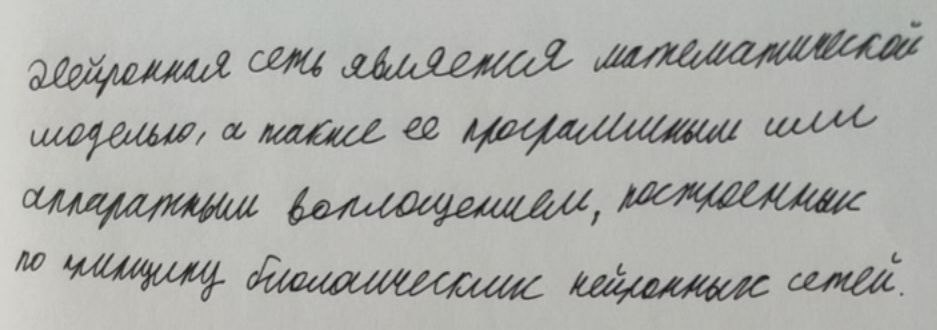 Нейронная сеть является математической
моделью, а также ее программным или
аппаратным воплощением, построенных
по принципу биологических нейронных сетей.